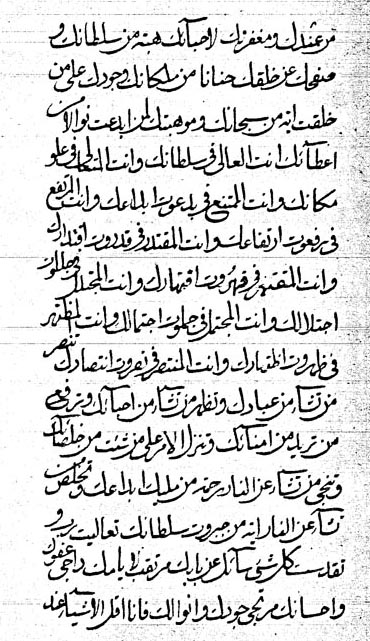 من عندك ومغفرتك لاحبائك هبة من سلطانك و
صفحك عن خلقك حنانا من لمكانك وجودك على من
خلقت انه من سبحانك وموهبتك لمن ابدعت نوالا من
اعطائك انت العالي في سلطانك وانت المتعالي في علو
مكانك وانت الممتنع في بدعوت ابداعك وانت المرتفع
في رفعوت ارتفاعك وانت المقتدر في قدروت اقتدارك
وانت المقتهر في قهروت اقتهارك وانت المجتلل في جللوت
اجتلالك وانت المجتمل في جملوت اجتمالك وانت المظتهر
في ظهروت اظتهارك وانت المنتصر في نصروت انتصارك تنصر
من تشاء من عبادك وتظهر من تشاء من احبائك وترفع
من تريد من امنائك وتنزل الامر على من شئت من خلقك
وتنجي من تشاء عن النار رحمة من ابداعك وتخلص من
تشاء عن النار اية من جبروت سلطانك تعاليت
تقدست كل شيء سائلك عن بابك مرتقب لايامك راجي عفوك
واحسانك مرتجي جودك ونوالك فانا اقل الاشياء عند